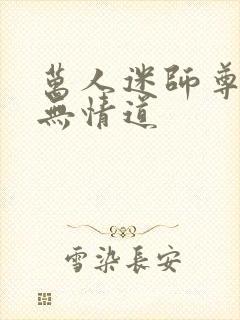 萬人迷師尊
無情道
雪染長安